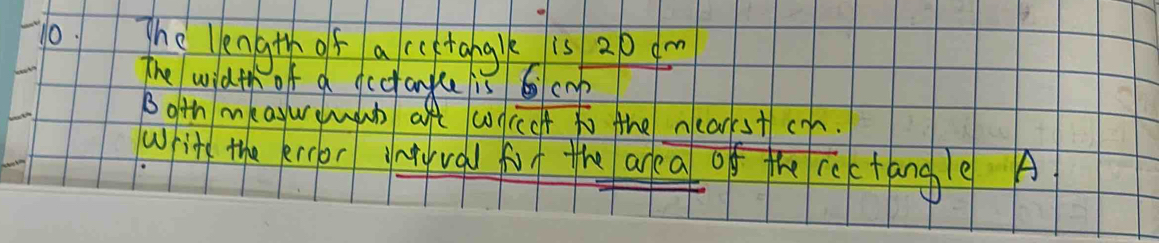 10. The length of a rectangle is 20 cm
The width of a rectangle is 6 cm
Both measurements are correct to the nearest cm.
Write the error interval for the area of the rectangle A.